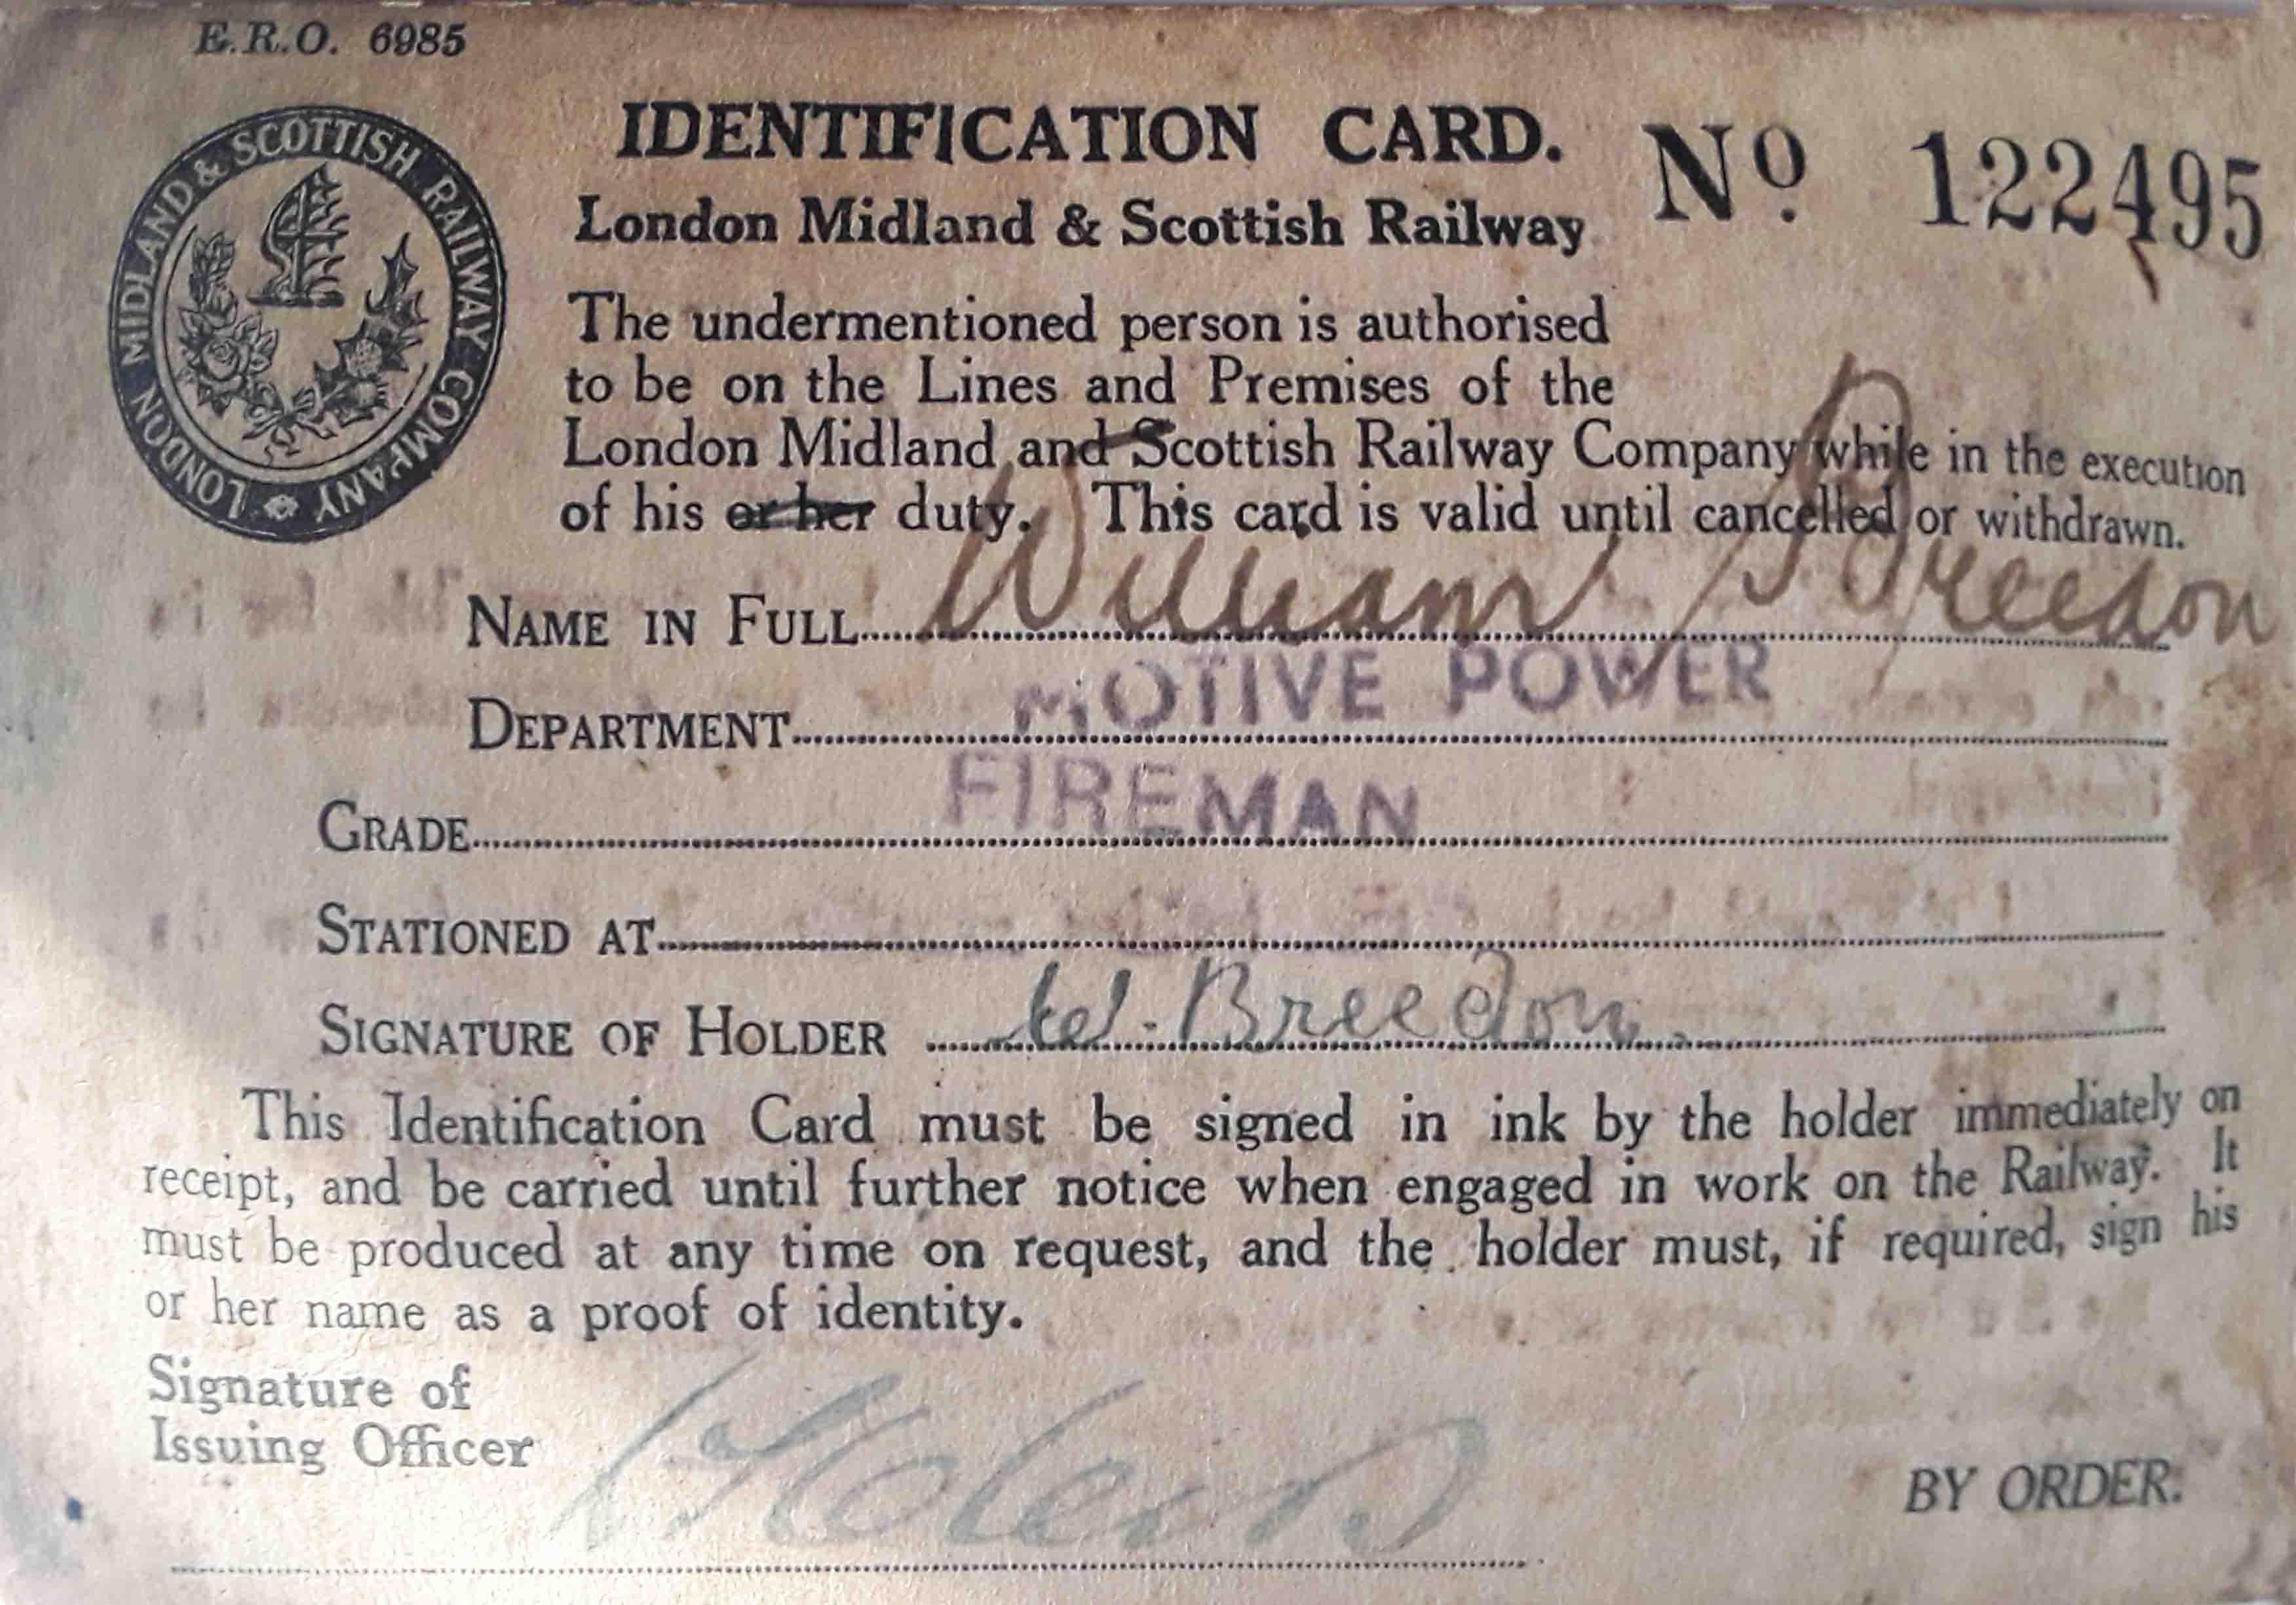 E.R.O. 6985
IDENTIFICATION CARD. Nº 122495
LONDON MIDLAND & SCOTTISH RAILWAY COMPANY
London Midland & Scottish Railway
The undermentioned person is authorised
to be on the Lines and Premises of the
London Midland and Scottish Railway Company while in the execution
of his or her duty. This card is valid until cancelled or withdrawn.
NAME IN FULL William Breedon
DEPARTMENT MOTIVE POWER
GRADE FIREMAN
STATIONED AT
SIGNATURE OF HOLDER W. Breedon.
This Identification Card must be signed in ink by the holder immediately on
receipt, and be carried until further notice when engaged in work on the Railway. It
must be produced at any time on request, and the holder must, if required, sign his
or her name as a proof of identity.
Signature of
Issuing Officer
BY ORDER.